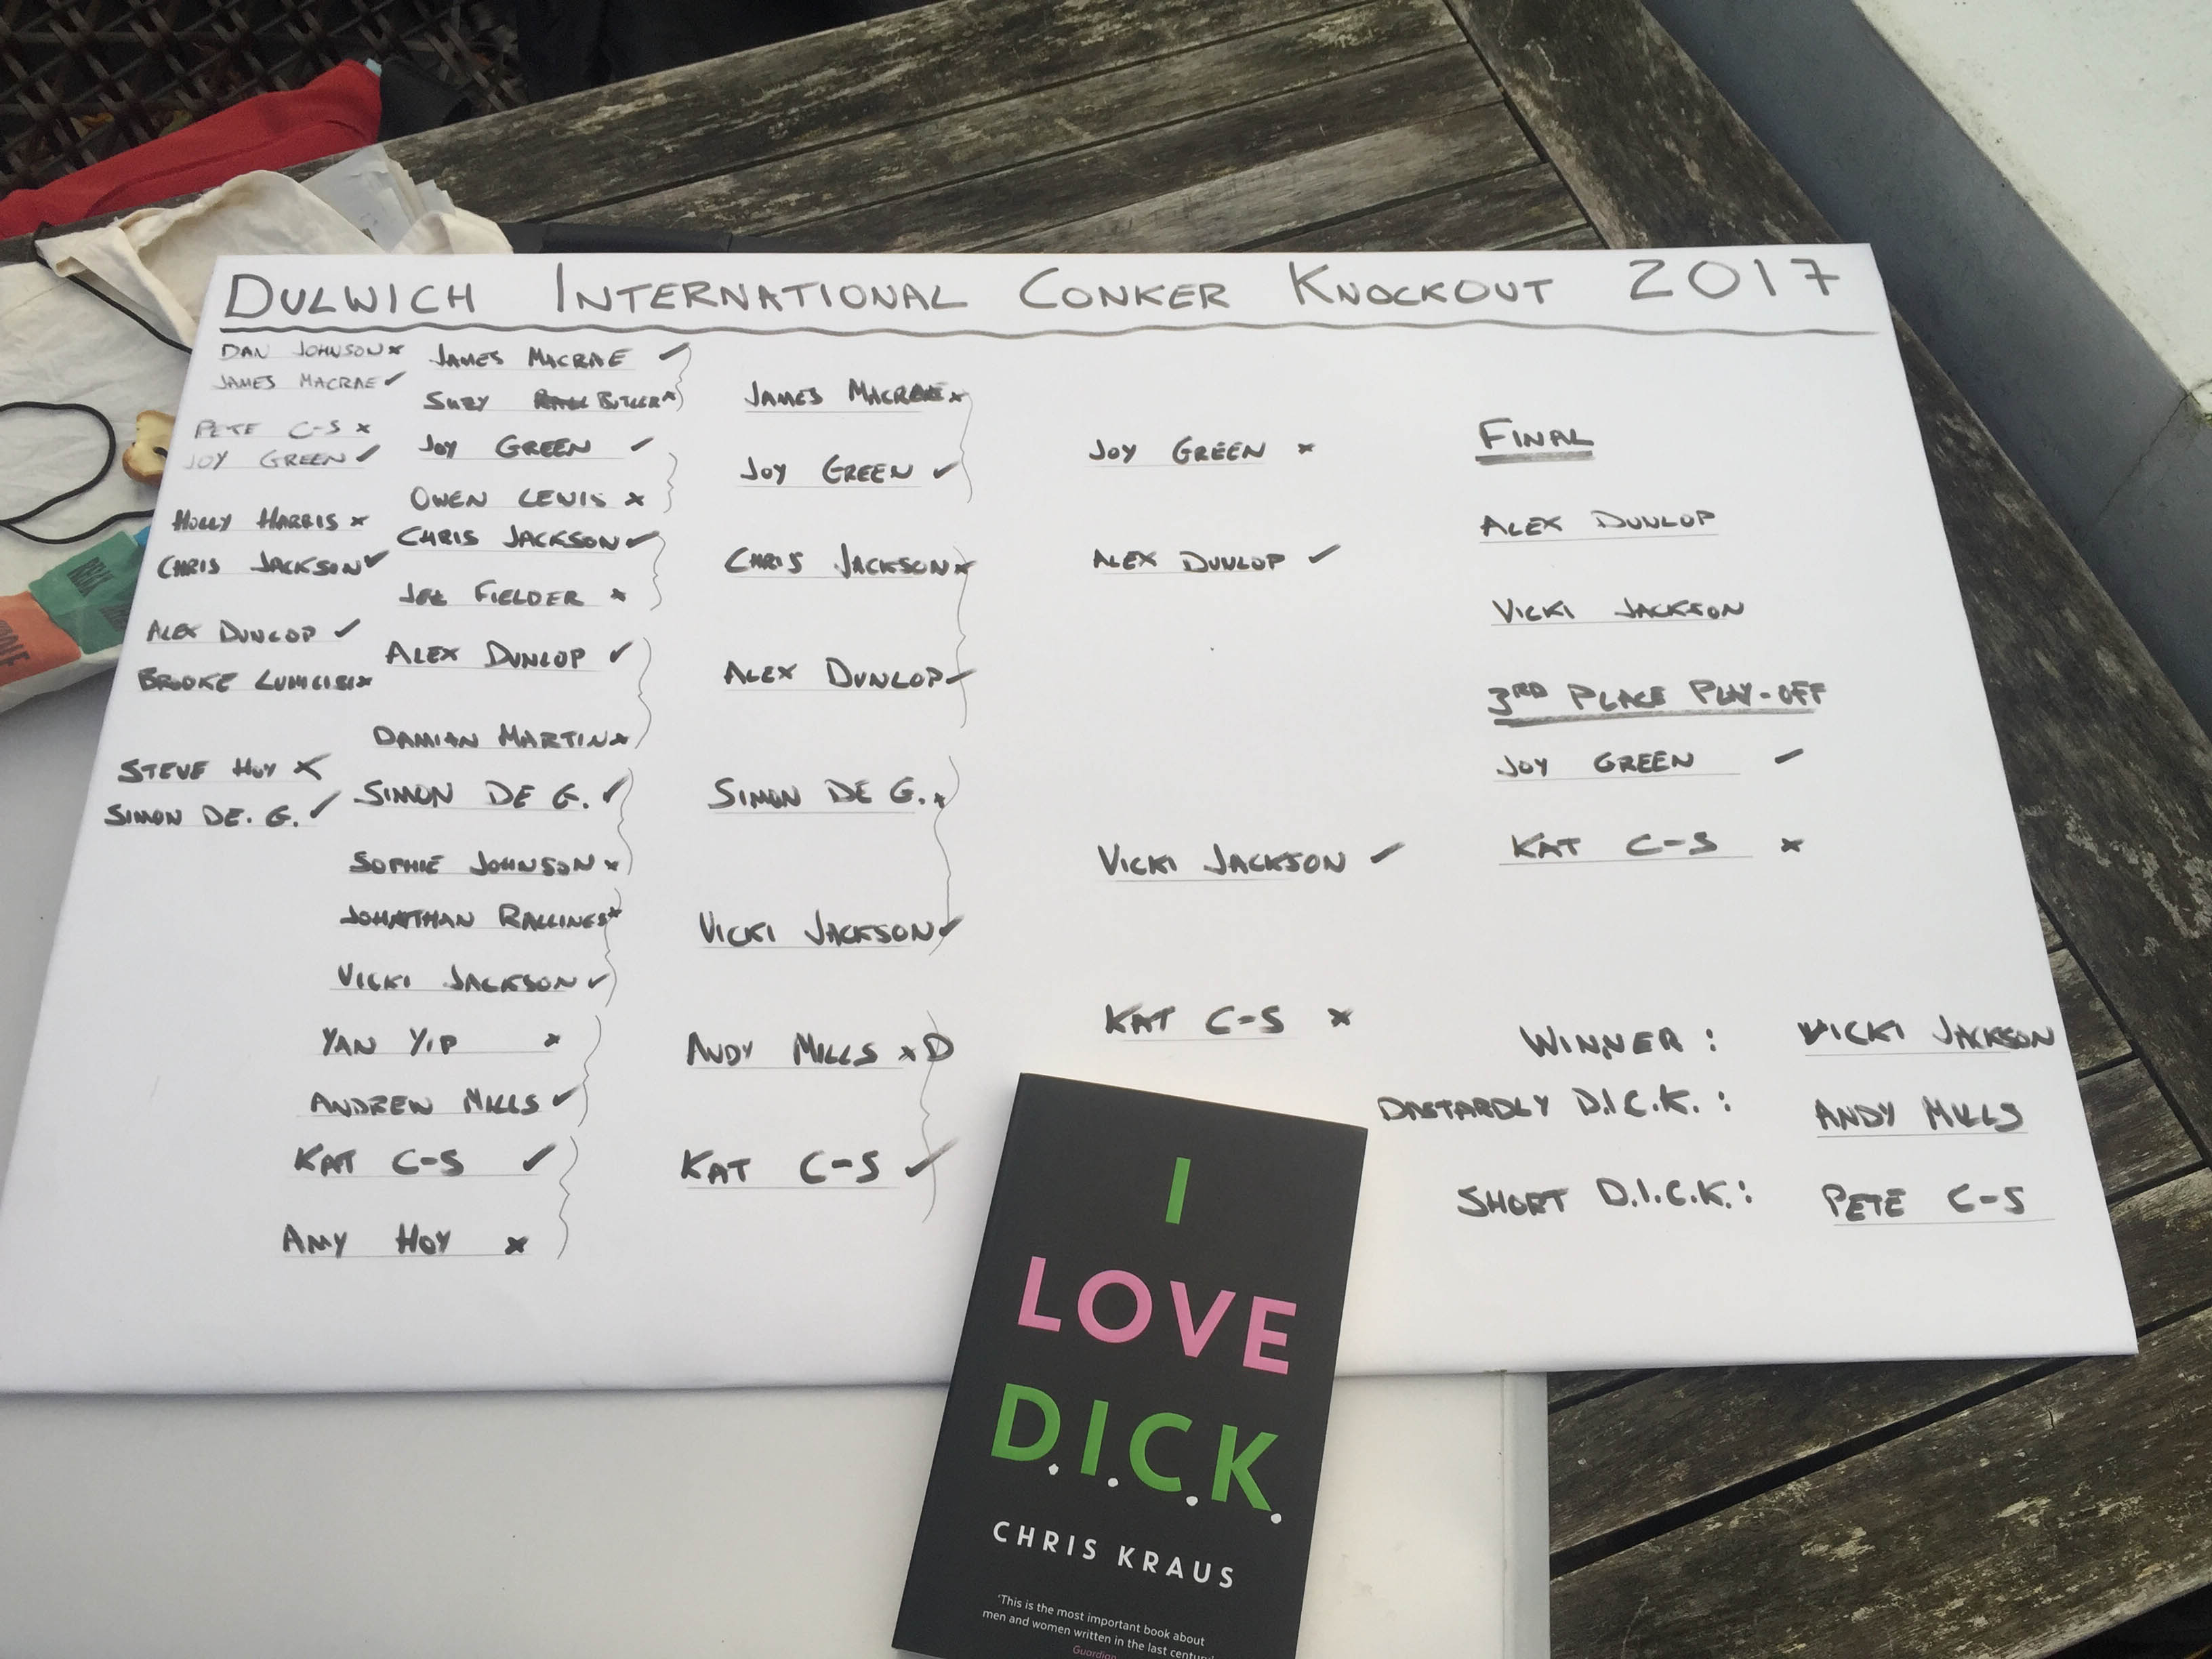 DULWICH INTERNATIONAL CONKER KNOCKOUT 2017
DAN JOHNSON x
JAMES MACRAE ✓
PETE C-S x
JOY GREEN ✓
HOLLY HARRIS x
CHRIS JACKSON ✓
ALEX DUNLOP ✓
BROOKE
STEVE HOY x
SIMON DE. G. ✓
JAMES MACRAE ✓
SUZY BUTLER x
JOY GREEN ✓
OWEN LEWIS x
CHRIS JACKSON ✓
JEZ FIELDER x
ALEX DUNLOP ✓
DAMIAN MARTIN x
SIMON DE G. ✓
SOPHIE JOHNSON x
JOHNATHAN RALLINGS x
VICKI JACKSON ✓
YAN YIP x
ANDREW MILLS ✓
KAT C-S ✓
AMY HOY x
JAMES MACRAE x
JOY GREEN ✓
CHRIS JACKSON x
ALEX DUNLOP ✓
SIMON DE G. x
VICKI JACKSON ✓
ANDY MILLS x D
KAT C-S ✓
JOY GREEN x
ALEX DUNLOP ✓
VICKI JACKSON ✓
KAT C-S x
FINAL
ALEX DUNLOP
VICKI JACKSON
3RD PLACE PLAY-OFF
JOY GREEN ✓
KAT C-S x
WINNER : VICKI JACKSON
DASTARDLY D.I.C.K. : ANDY MILLS
SHORT D.I.C.K. : PETE C-S
I
LOVE
D.I.C.K.
CHRIS KRAUS
'This is the most important book about
men and women written in the last century'
Guardian